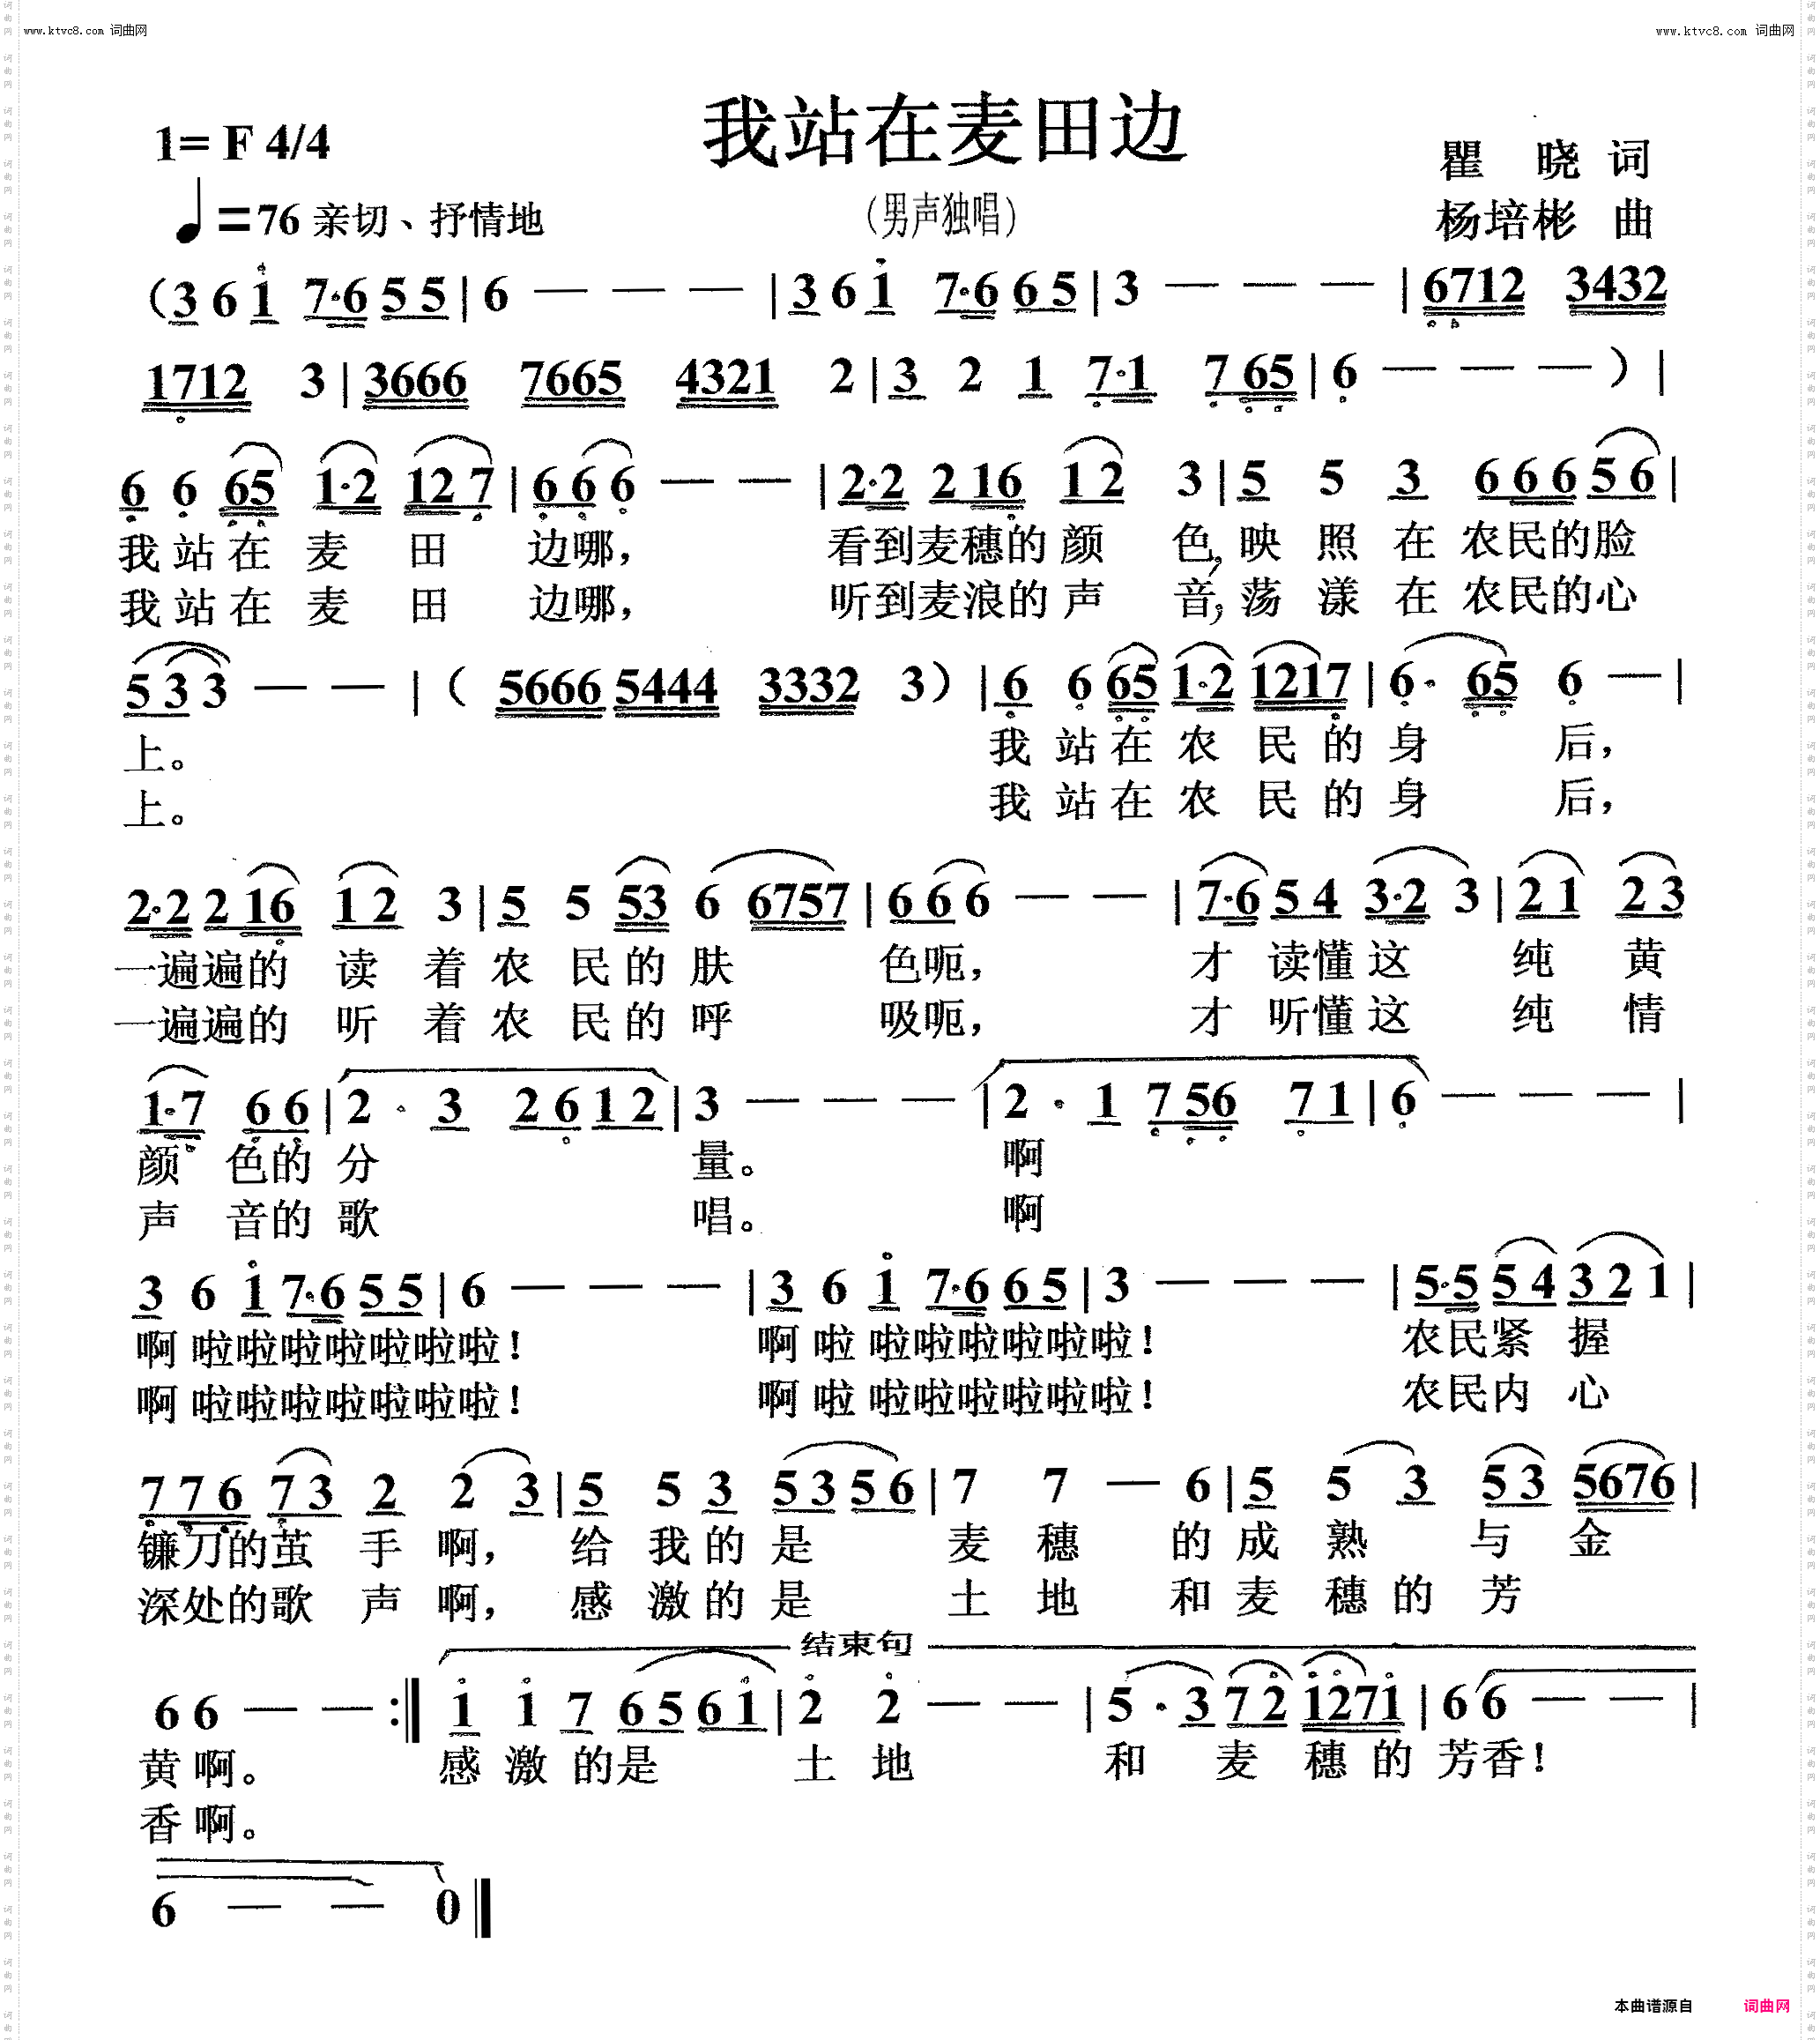 www.ktvc8.com 词曲网
www.ktvc8.com 词曲网
我站在麦田边
1= F 4/4
瞿 晓 词
=76 亲切、抒情地
（男声独唱）
杨培彬 曲
（3 6 1 7·6 5 5 | 6 — — — | 3 6 1 7·6 6 5 | 3 — — — | 6712 3432
1712 3 | 3666 7665 4321 2 | 3 2 1 7·1 7 65 | 6 — — — ）|
6 6 65 1·2 12 7 | 6 6 6 — — | 2·2 2 16 1 2 3 | 5 5 3 6 6 6 5 6 |
我 站 在 麦 田 边哪， 看到麦穗的 颜 色，映 照 在 农民的脸
我 站 在 麦 田 边哪， 听到麦浪的 声 音，荡 漾 在 农民的心
5 3 3 — — | （ 5666 5444 3332 3）| 6 6 65 1·2 1217 | 6· 65 6 — |
上。 我 站 在 农 民 的 身 后，
上。 我 站 在 农 民 的 身 后，
2·2 2 16 1 2 3 | 5 5 53 6 6757 | 6 6 6 — — | 7·6 5 4 3·2 3 | 2 1 2 3
一遍遍的 读 着 农 民 的 肤 色呃， 才 读懂 这 纯 黄
一遍遍的 听 着 农 民 的 呼 吸呃， 才 听懂 这 纯 情
1·7 6 6 | 2 · 3 2 6 1 2 | 3 — — — | 2 · 1 7 56 7 1 | 6 — — — |
颜 色的 分 量。 啊
声 音的 歌 唱。 啊
3 6 1 7·6 5 5 | 6 — — — | 3 6 1 7·6 6 5 | 3 — — — | 5·5 5 4 3 2 1 |
啊 啦啦啦啦啦啦啦！ 啊 啦 啦啦啦啦啦啦！ 农民紧 握
啊 啦啦啦啦啦啦啦！ 啊 啦 啦啦啦啦啦啦！ 农民内 心
7 7 6 7 3 2 2 3 | 5 5 3 5 3 5 6 | 7 7 — 6 | 5 5 3 5 3 5676 |
镰刀的茧 手 啊， 给 我 的 是 麦 穗 的 成 熟 与 金
深处的歌 声 啊， 感 激 的 是 土 地 和 麦 穗 的 芳
结束句
6 6 — — :‖ 1 1 7 6 5 6 1 | 2 2 — — | 5 · 3 7 2 1271 | 6 6 — — |
黄 啊。 感 激 的是 土 地 和 麦 穗 的 芳香！
香 啊。
6 — — 0 ‖
本曲谱源自 词曲网